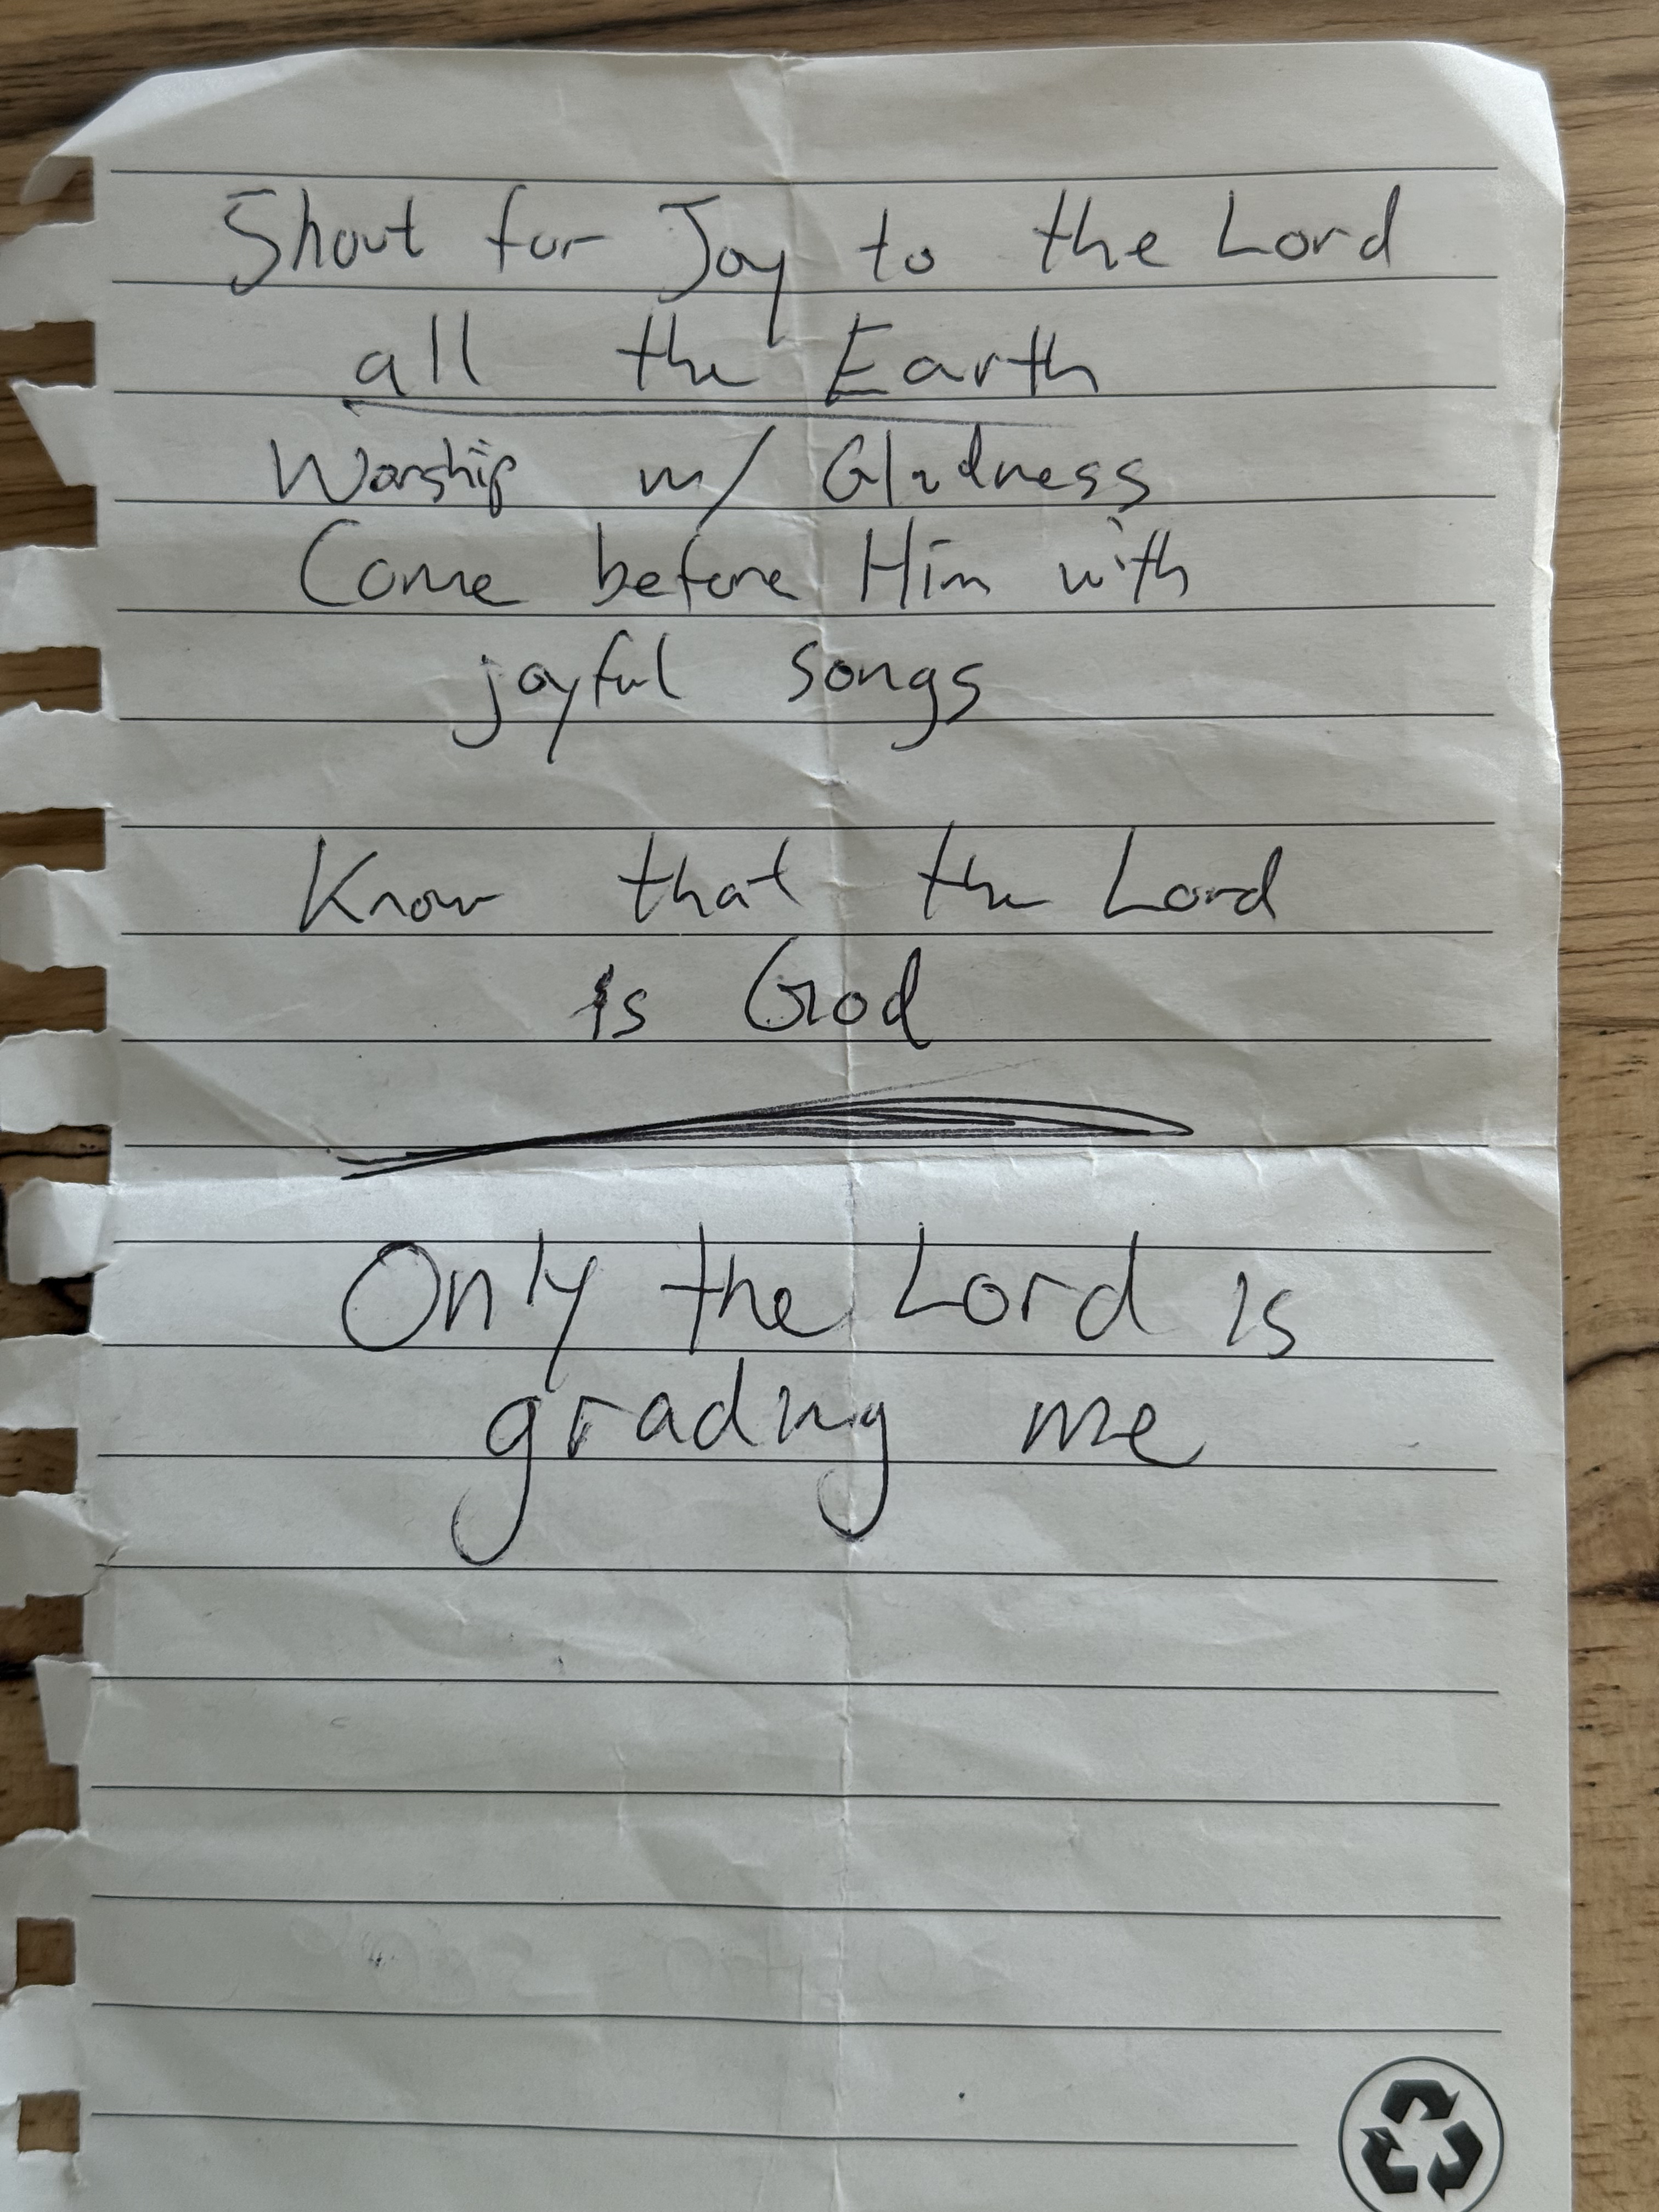 Shout for Joy to the Lord
all the Earth
Worship w/ Gladness
Come before Him with
joyful songs
Know that the Lord
is God
Only the Lord is
grading me